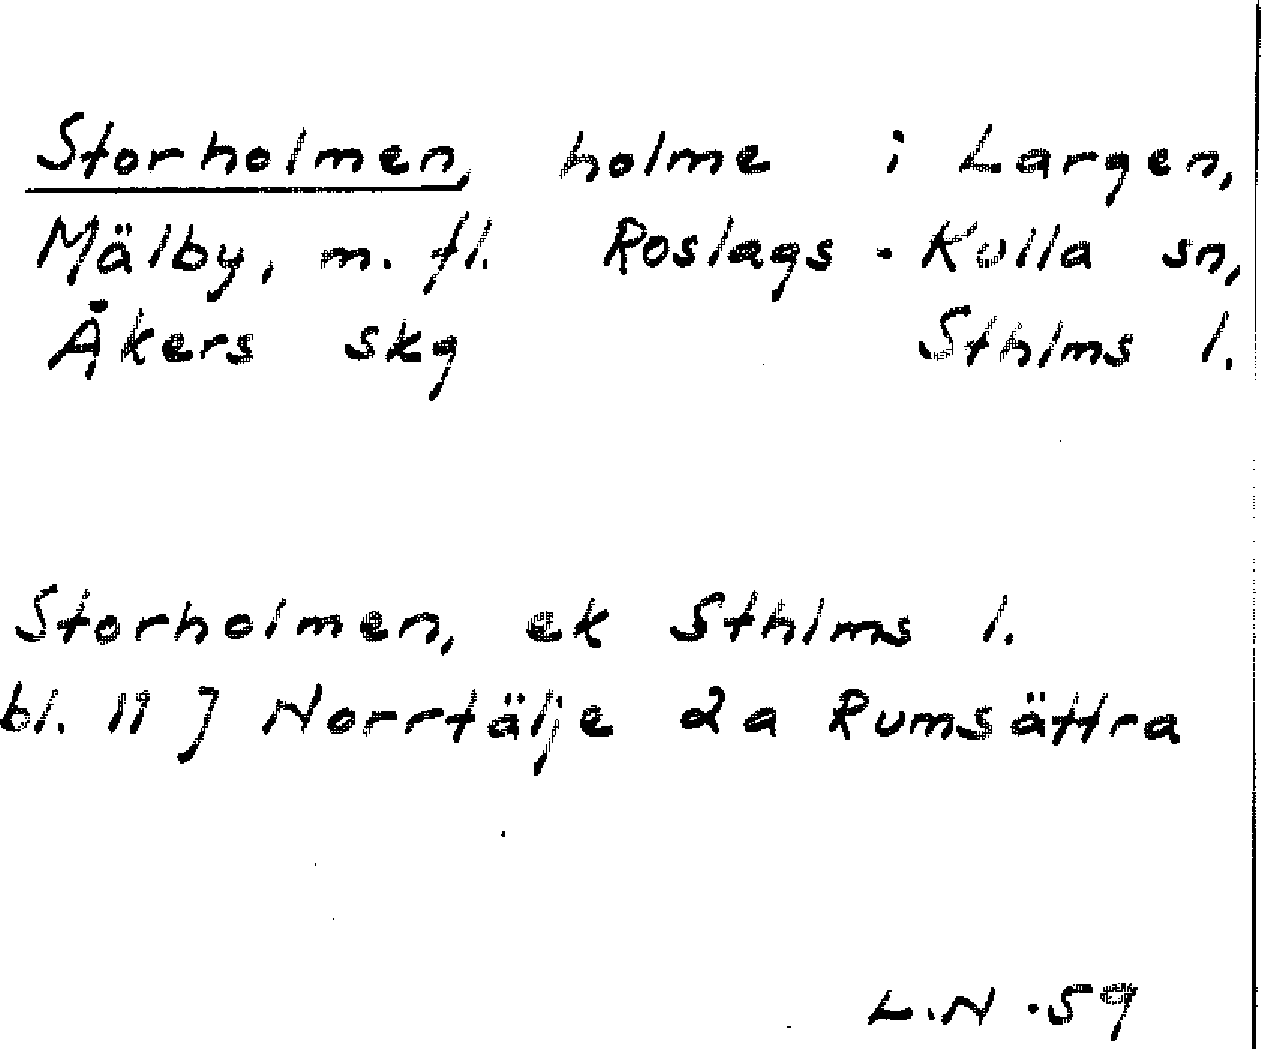 Storholmen, holme i Largen,
Mälby, m. fl. Roslags-Kulla sn,
Åkers skg Sthlms l.
Storholmen, ek Sthlms l.
bl. 11 J Norrtälje 2a Rumsättra
L.N -59